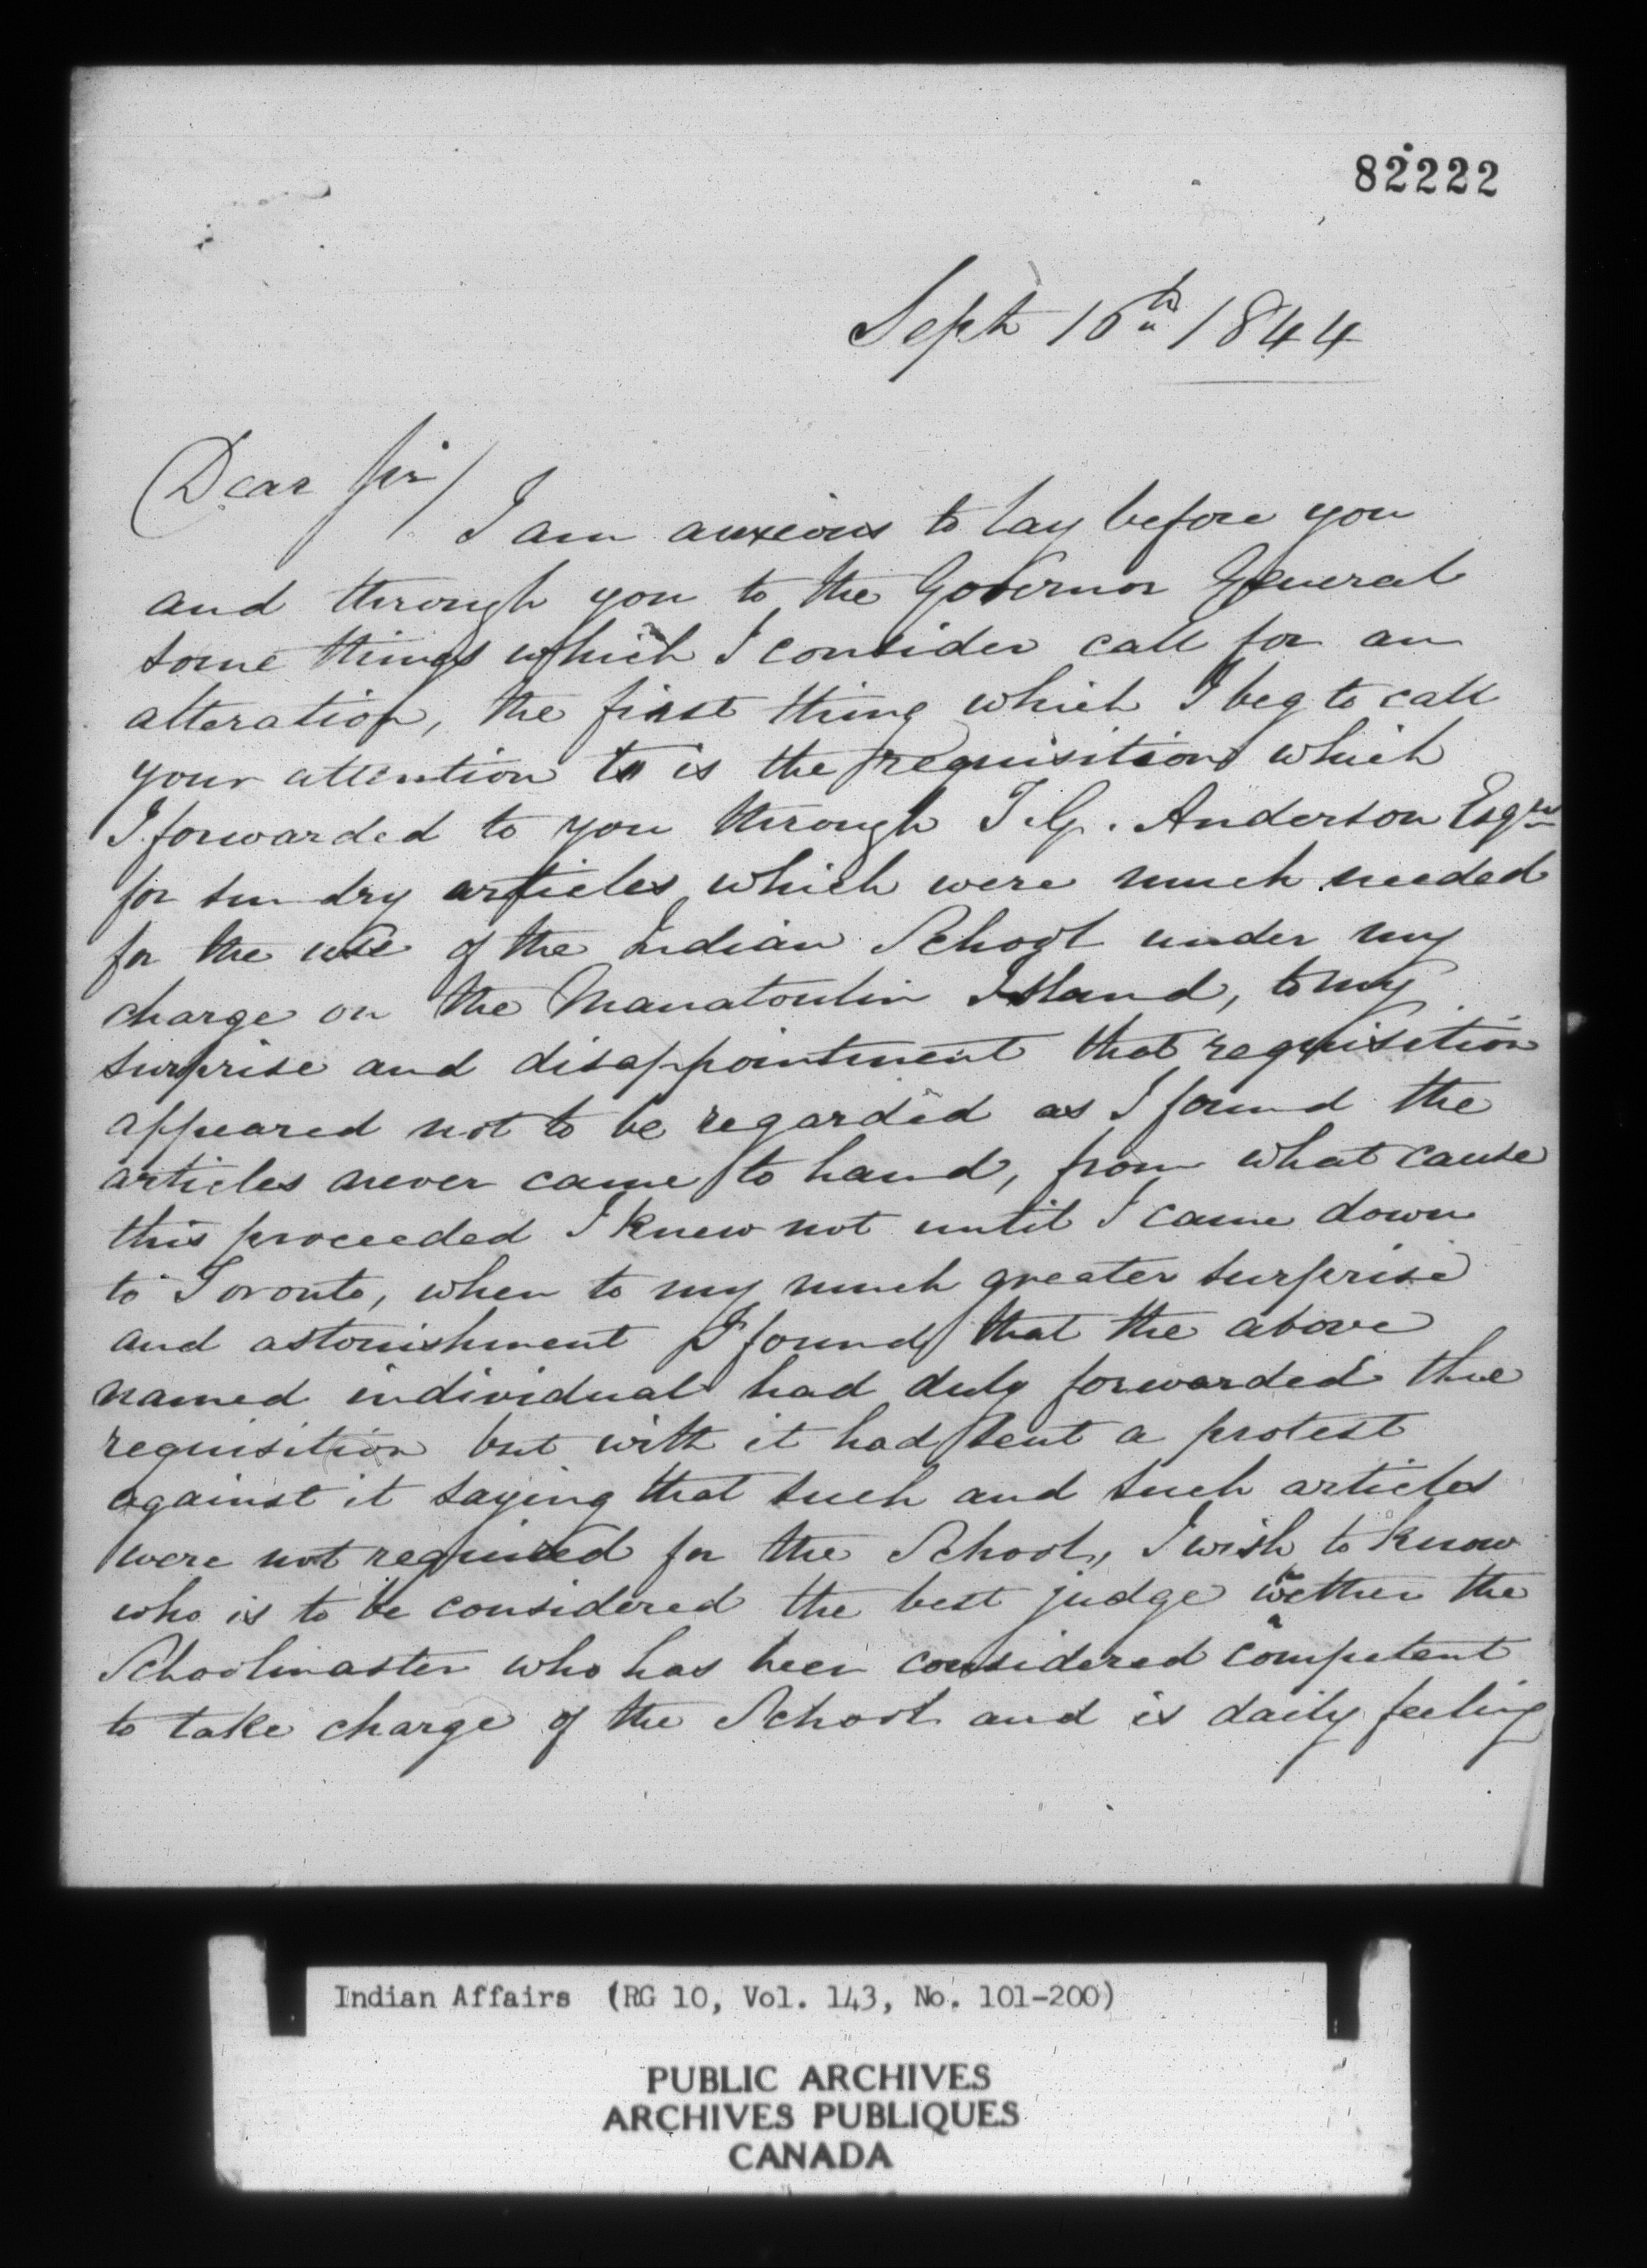 82222
Sept 16th 1844
Dear Sir/
I am anxious to lay before you
and through you to the Governor General
some things which I consider call for an
alteration, the first thing which I beg to call
your attention to is the requisition which
I forwarded to you through T. G. Anderson Esqre
for sundry articles which were much needed
for the use of the Indian School under my
charge on the Manatoulin Island, to my
surprise and disappointment that requisition
appeared not to be regarded as I found the
articles never came to hand, from what cause
this proceeded I knew not until I came down
to Toronto, when to my much greater surprise
and astonishment I found that the above
named individual had duly forwarded the
requisition but with it had sent a protest
against it saying that such and such articles
were not required for the School, I wish to know
who is to be considered the best judge wether the
Schoolmaster who has been considered competent
to take charge of the School and is daily feeling
Indian Affairs (RG 10, Vol. 143, No. 101-200)
PUBLIC ARCHIVES
ARCHIVES PUBLIQUES
CANADA